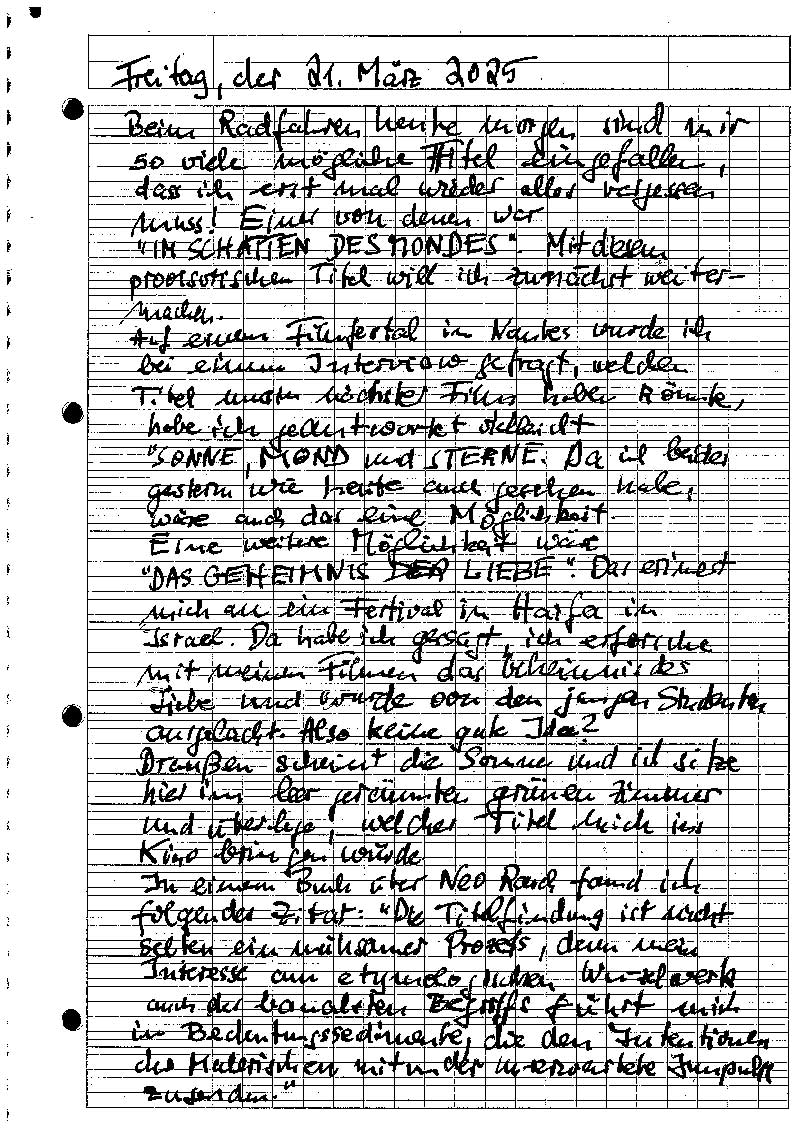 Freitag, der 21. März 2025
Beim Radfahren heute morgen sind mir
so viele mögliche Titel eingefallen,
dass ich erst mal wieder alles vergessen
muss! Einer von denen war
"IM SCHATTEN DES MONDES". Mit diesem
provisorischen Titel will ich zunächst weiter-
machen.
Auf einem Filmfestival in Nantes wurde ich
bei einem Interview gefragt, welchen
Titel unser nächster Film haben könnte,
habe ich geantwortet vielleicht
"SONNE, MOND und STERNE. Da ich beides
gestern wie heute auch gesehen habe,
wäre auch das eine Möglichkeit.
Eine weitere Möglichkeit wäre
"DAS GEHEIMNIS DER LIEBE". Das erinnert
mich an ein Festival in Haifa in
Israel. Da habe ich gesagt, ich erforsche
mit meinen Filmen das Geheimnis des
Liebe und wurde von den jungen Studenten
ausgelacht. Also keine gute Idee?
Draußen scheint die Sonne und ich sitze
hier im leer geräumten grünen Zimmer
und überlege, welcher Titel mich ins
Kino bringen würde
In einem Buch über Neo Rauch fand ich
folgendes Zitat: "Die Titelfindung ist nicht
selten ein mühsamer Prozeß, denn mein
Interesse am etymologischen Wurzelwerk
auch der banalsten Begriffe führt mich
in Bedeutungssedimente, die den Intentionen
des Malerischen mitunter unerwartete Impulse
zusenden."